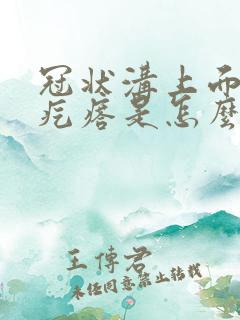 冠状溝上而
疙瘩是怎麼
王傳君
未经同意禁止转载